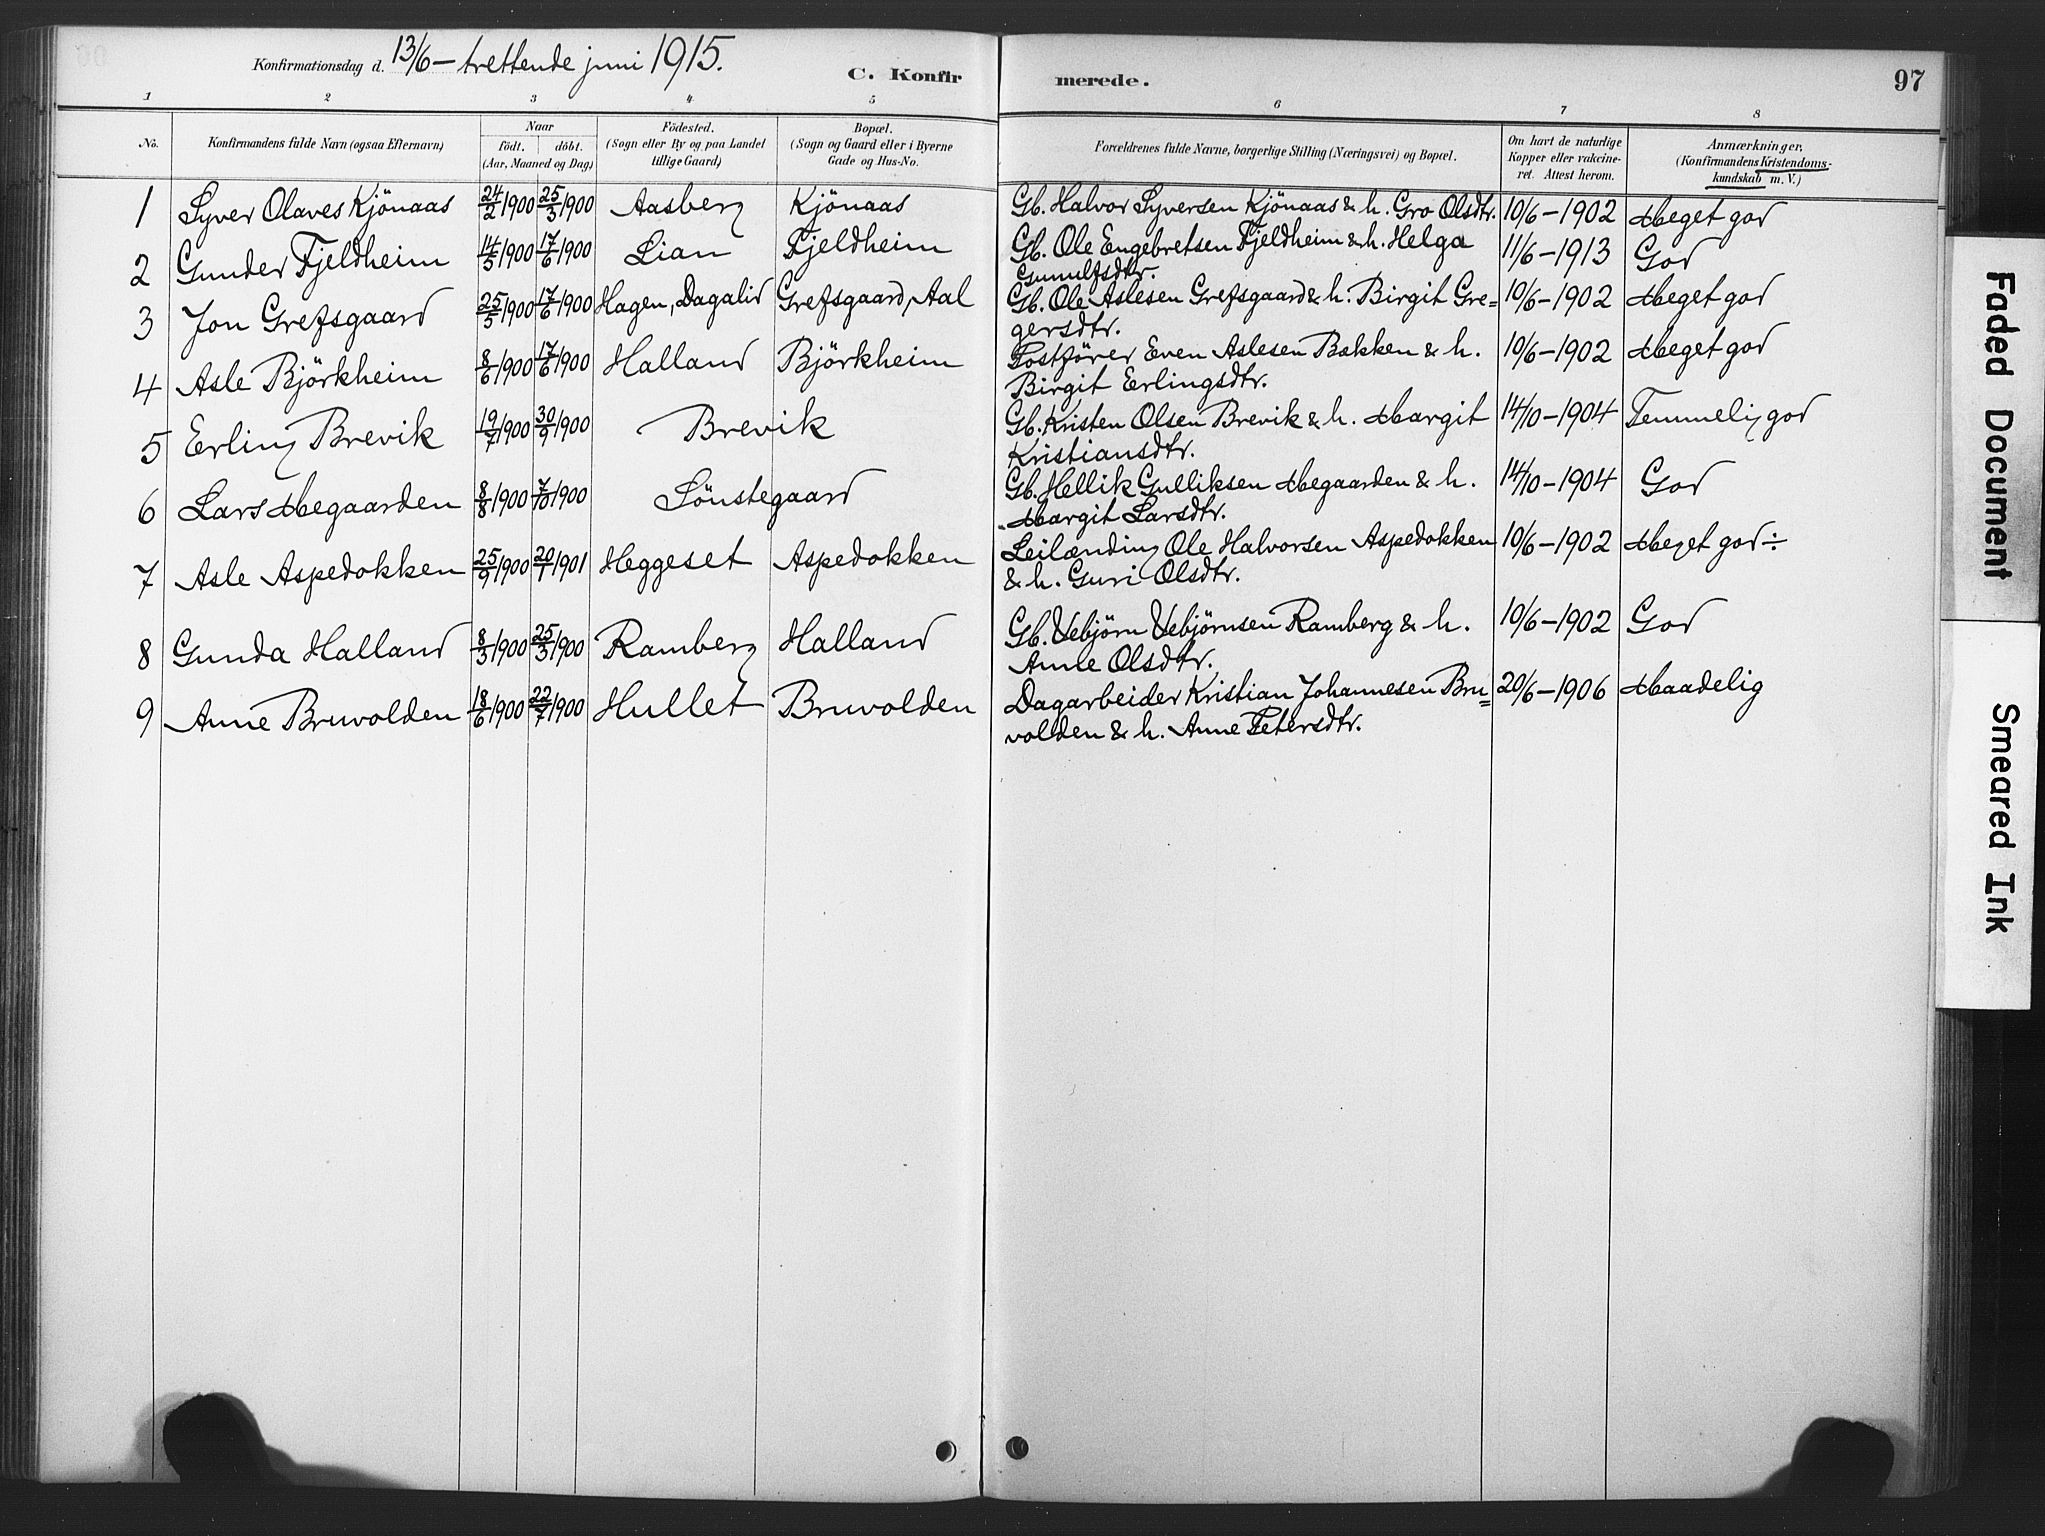 Konfirmationsdag d. 13/6 – trettende juni 1915.
C. Konfirmerede.
97
1 2 3 4 5 6 7 8
No. Konfirmandens fulde Navn (ogsaa Efternavn) Naar födt. döbt. (Aar, Maaned og Dag) Födested. (Sogn eller By og paa Landet tillige Gaard) Bopæl. (Sogn og Gaard eller i Byerne Gade og Hus-No. Forældrenes fulde Navne, borgerlige Stilling (Næringsvei) og Bopæl. Om havt de naturlige Kopper eller vakcineret. Attest herom. Anmærkninger, (Konfirmandens Kristendomskundskab m. V.)
1 Syver Olaves Kjönaas 24/2 1900 25/3 1900 Aasberg Kjönaas Gb. Halvor Syversen Kjönaas & h. Gro Olsdtr. 10/6 – 1902 Meget god
2 Gunder Fjeldheim 14/5 1900 17/6 1900 Lian Fjeldheim Gb. Ole Engebretsen Fjeldheim & h. Helga 11/6 – 1913 God
Gunulfsdtr.
3 Jon Grefsgaard 25/5 1900 17/6 1900 Hagen, Dagalid Grefsgaard, Aal Gb. Ole Aslesen Grefsgaard & h. Birgit Gre= 10/6 – 1902 Meget god
gersdtr.
4 Asle Björkheim 8/6 1900 17/6 1900 Halland Björkheim Postförer Even Aslesen Bakken & h. 10/6 – 1902 Meget god
Birgit Erlingsdtr.
5 Erling Brevik 19/7 1900 30/9 1900 Brevik Gb. Kristen Olsen Brevik & h. Margit 14/10 – 1904 Temmelig god
Kristiansdtr.
6 Lars Megaarden 8/8 1900 7/10 1900 Lönstegaard Gb. Hellik Gulliksen Megaarden & h. 14/10 – 1904 God
Margit Larsdtr.
7 Asle Aspedokken 25/9 1900 20/1 1901 Heggeset Aspedokken Leilænding Ole Halvorsen Aspedokken 10/6 – 1902 Meget god ÷
& h. Guri Olsdtr.
8 Gunda Halland 8/3 1900 25/3 1900 Ramberg Halland Gb. Vebjörn Vebjörnsen Ramberg & h. 10/6 – 1902 God
Anne Olsdtr.
9 Anne Bruvolden 18/6 1900 22/7 1900 Hullet Bruvolden Dagarbeider Kristian Johannesen Bru= 20/6 – 1906 Maadelig
volden & h. Anne Petersdtr.
Faded Document
Smeared Ink